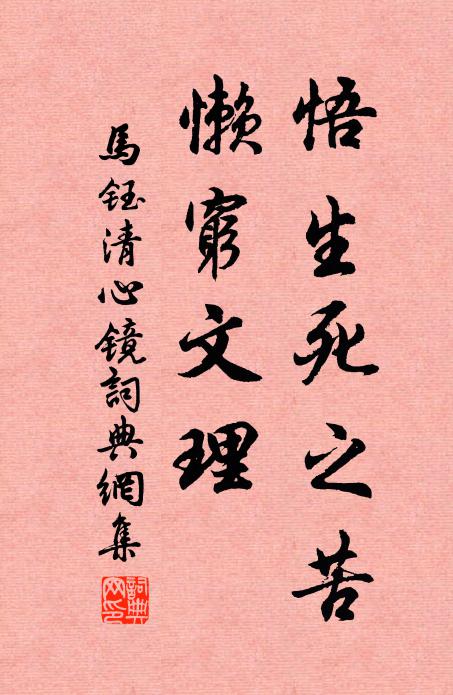 悟生死之苦
懶窮文理
馬鈺清心鏡詞典網集
詞典网印